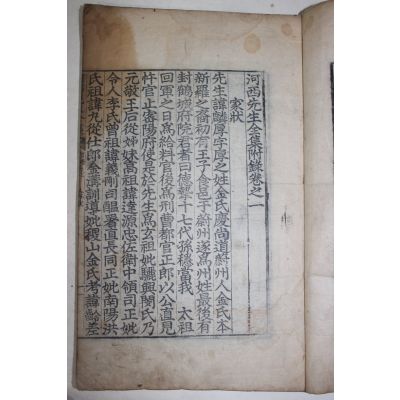 河西先生全集附錄卷之一
家狀
先生諱麟厚字厚之姓金氏慶尙道蔚州人金氏本
新羅之裔初有王子食邑于蔚州遂爲州姓最後有
封鶴城府院君者曰德摯十七代孫穩當我 太祖
回軍之日爲給料官後爲刑曹都官正郞以公直見
忤官止密陽府使是於先生爲玄祖妣驪興閔氏乃
元敬王后從姊妹高祖諱達源忠佐衛中領司正妣
令人李氏曾祖諱義剛司醞署直長同正妣南陽洪
氏祖諱丸從仕郞金溝訓導妣稷山金氏考諱齡差